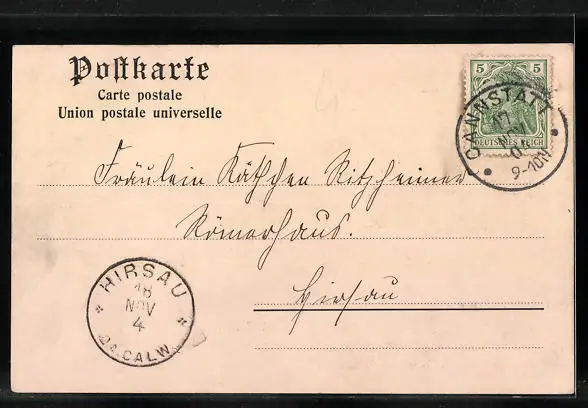 Postkarte
Carte postale
Union postale universelle
5 5
DEUTSCHES REICH
CANNSTATT
17
NOV
9-10N
Fräulein Käthchen Ritzheimer
Römerhaus.
Hirsau
HIRSAU
18
NOV
4
OA. CALW.